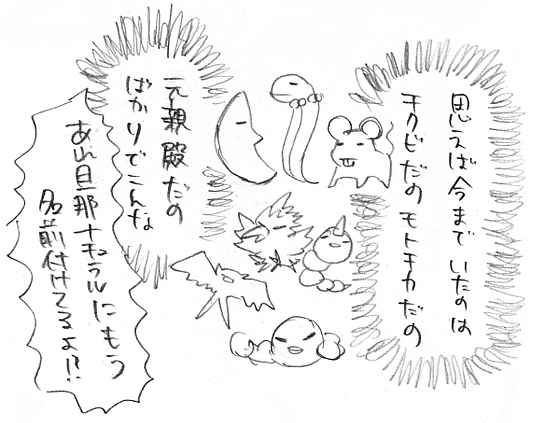 思えば今までいたのは
チクビだのモトチカだの
元親殿だの
ばかりでこんな
あれ旦那ナチュラルにもう
名前付けてるよ!?